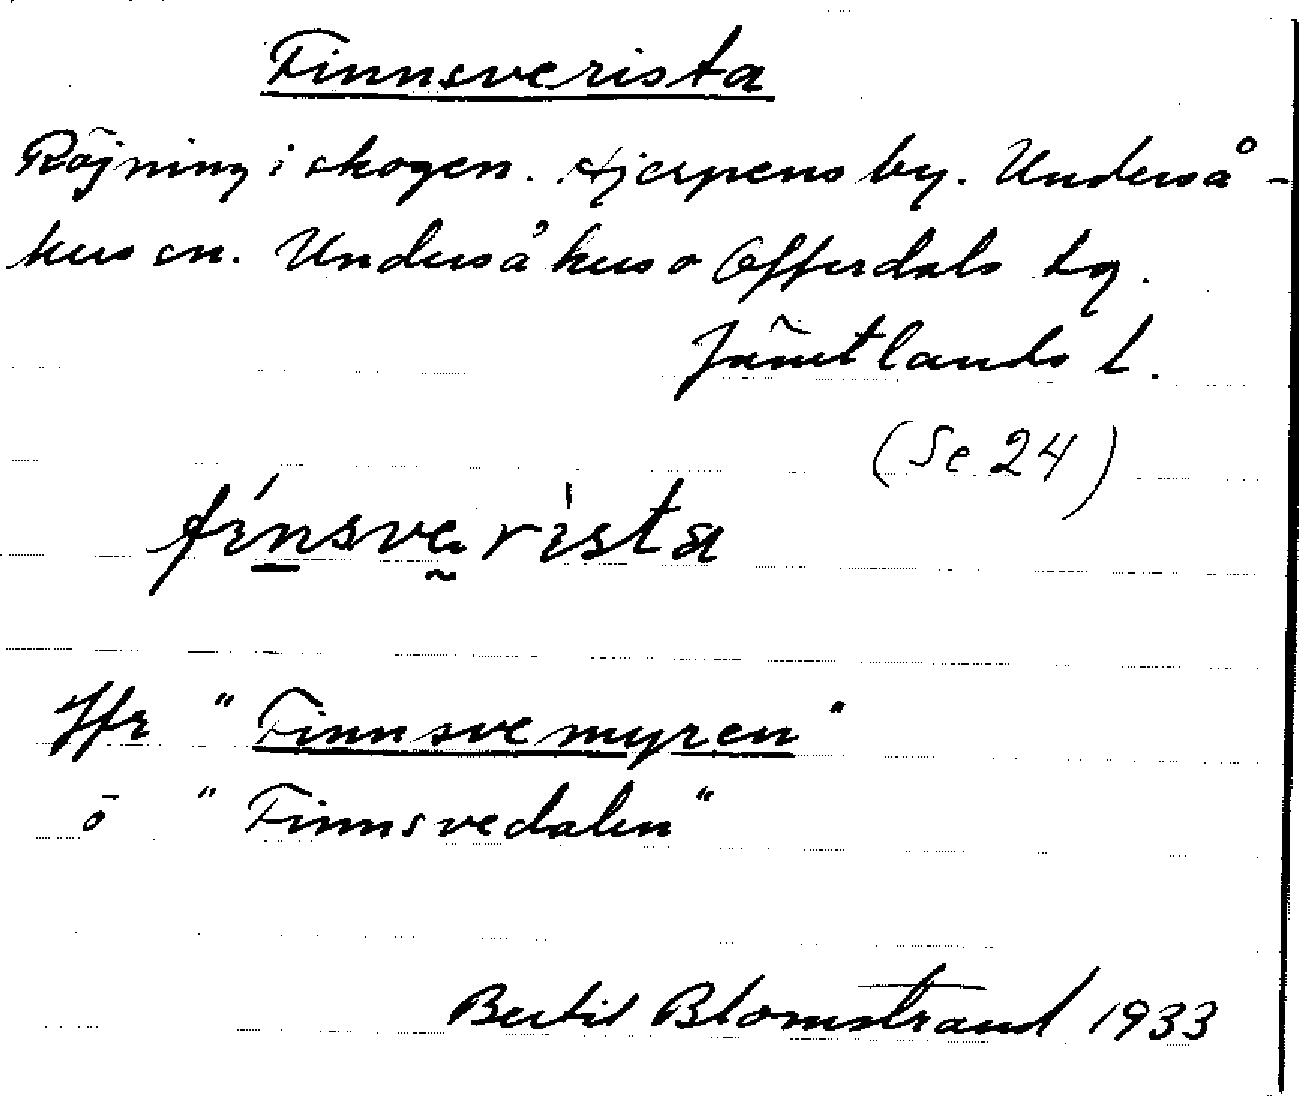 Finnsverista
Röjning i skogen. Hjerpens by. Underså-
kers sn. Undersåkers o Offerdals tg.
Jämtlands l.
(Se 24)
finsverista
Jfr "Finnsvemyren"
o "Finnsvedalen"
Bertil Blomstrand 1933